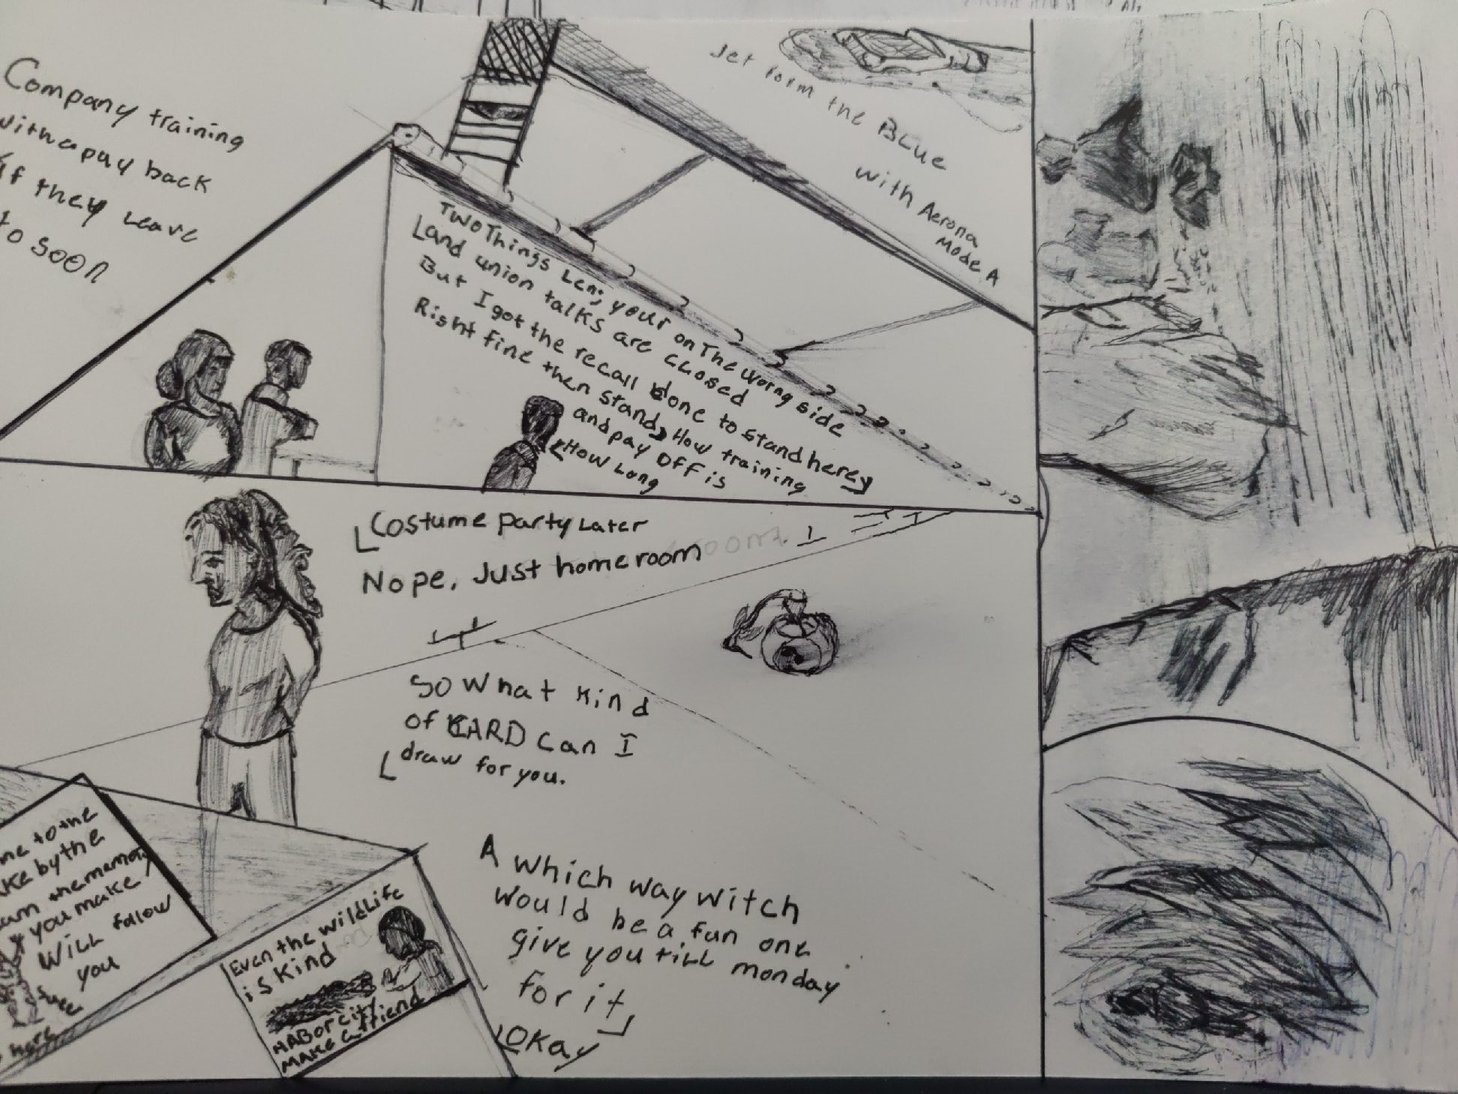 Company training
with a pay back
if they Leave
to soon
Jet form the BLUE
with Aerona
Mode A
Two Things Len; your on The worng side
Land union talks are closed
But I got the recall done to stand here
Right fine then stand, How training
and pay off is
How Long
Costume party Later
Nope, Just homeroom
So What Kind
of CARD can I
draw for you.
A Which way witch
would be a fun one
give you till monday
for it
Okay
me to the
by the
the memory
you make
Will follow
you
here
Even the wildLife
is Kind
HABor city
MAKE a friend